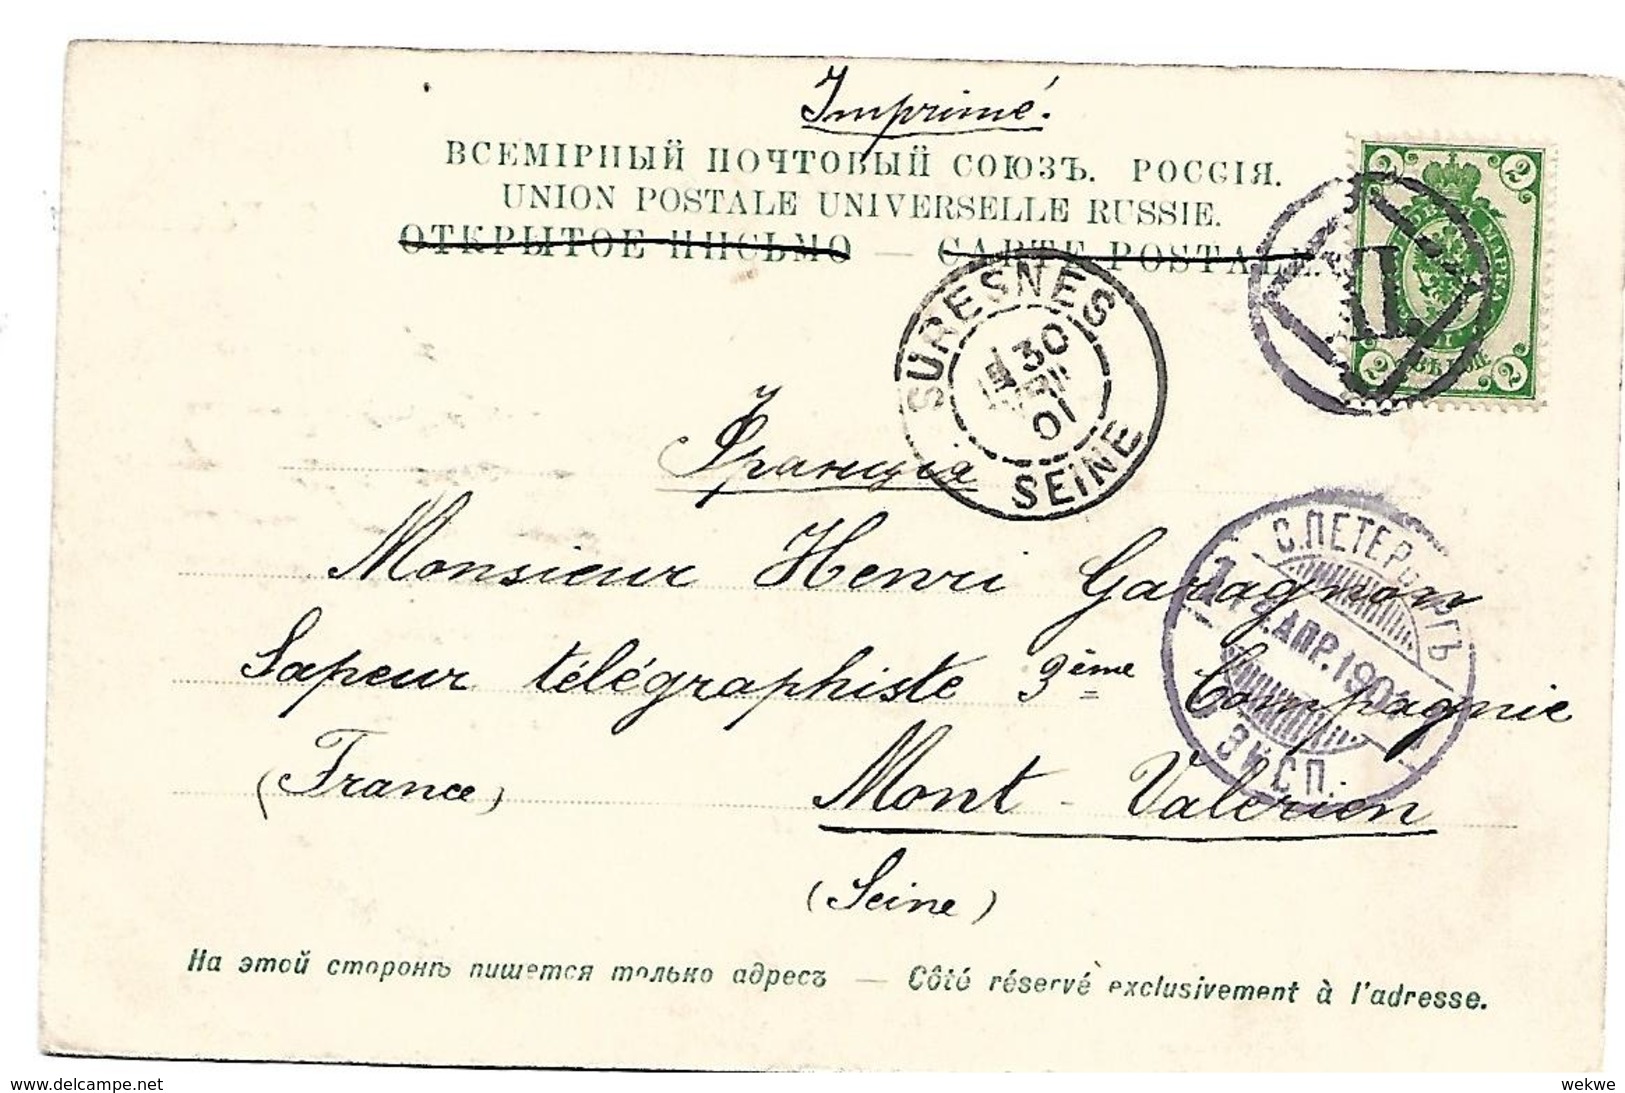 Imprimé.
ВСЕМІРНЫЙ ПОЧТОВЫЙ СОЮЗЪ. РОССІЯ.
UNION POSTALE UNIVERSELLE RUSSIE.
ОТКРЫТОЕ ПИСЬМО — CARTE POSTALE.
2 2
МАРКА
2 2
П
SURESNES
30
01
SEINE
Франція
С.ПЕТЕРБУРГЪ
АПР. 1901
Monsieur Henri Garagnon
Sapeur télégraphiste 3ème Compagnie
(France) Mont-Valerien
(Seine)
На этой сторонѣ пишется только адресъ — Côté réservé exclusivement à l'adresse.
www.delcampe.net
wekwe